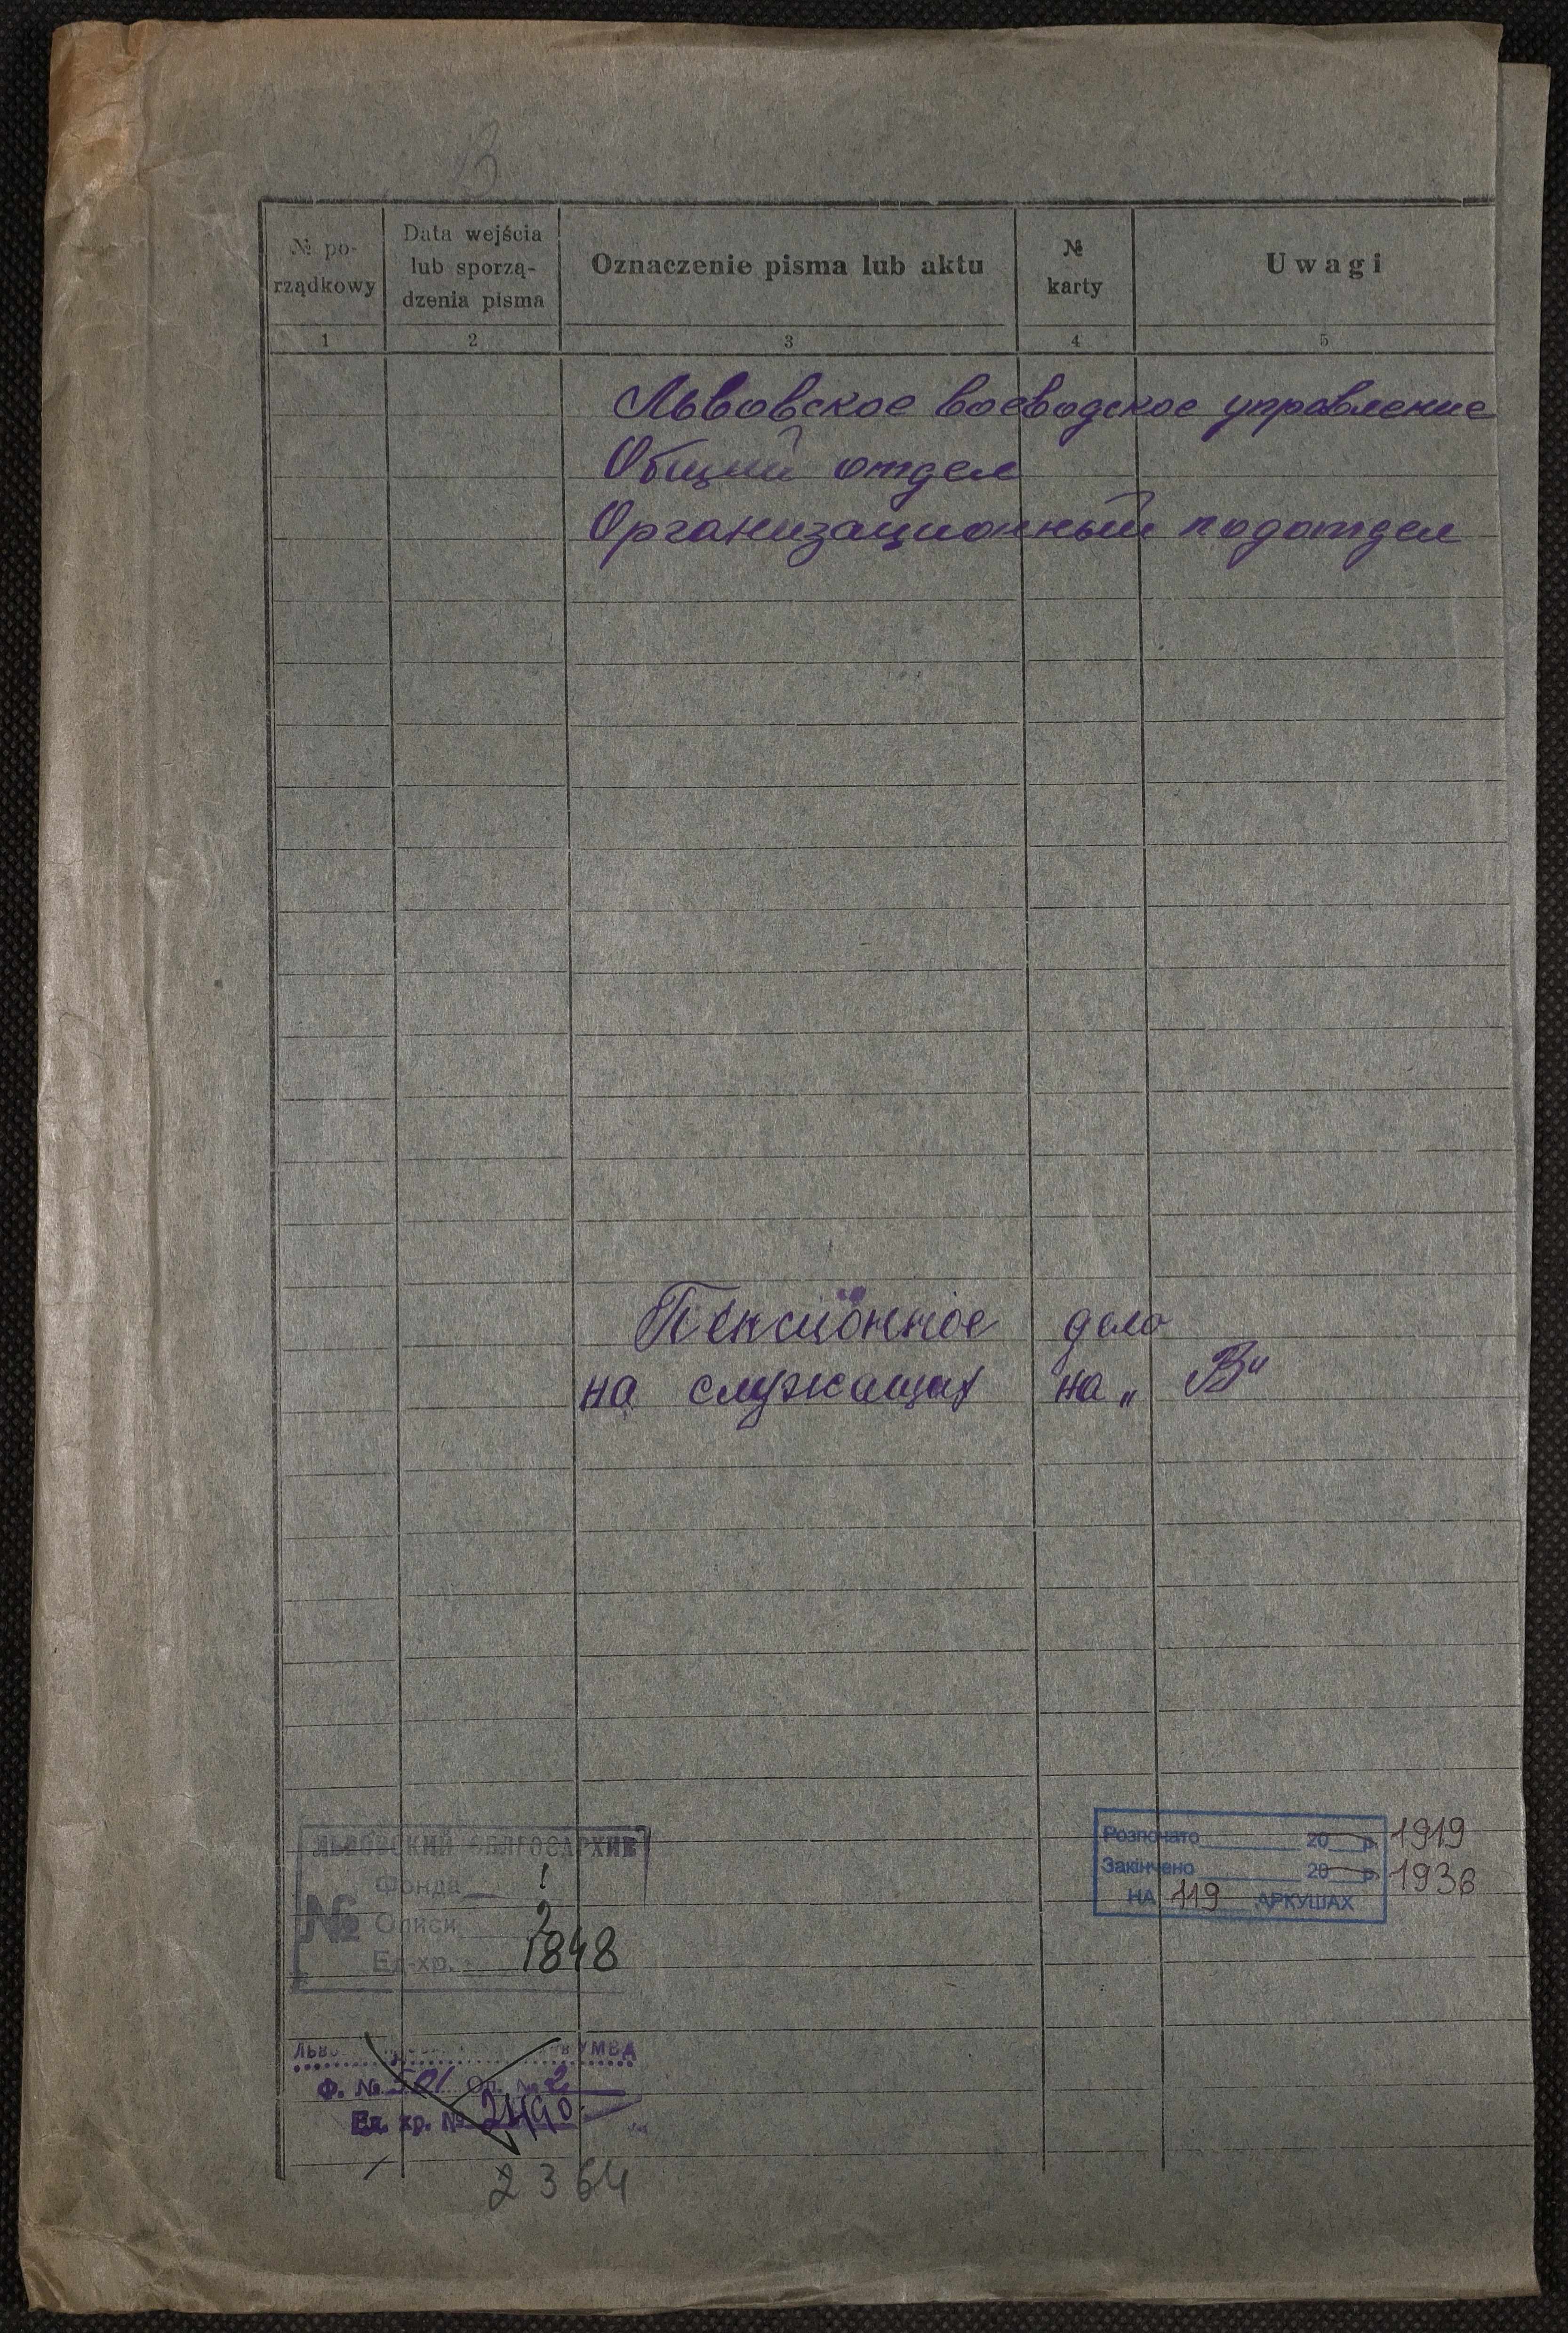 В
№ po-
rządkowy
Data wejścia
lub sporzą-
dzenia pisma
Oznaczenie pisma lub aktu
№
karty
Uwagi
1 2 3 4 5
Львовское воеводское управление
Общий отдел
Организационный подотдел
Пенсионное дело
на служащих на „В“
ЛЬВОВСКИЙ ОБЛГОСАРХИВ
Фонда 1
№ Описи 2
Ед. хр. 1848
Розпочато 20 р. 1919
Закінчено 20 р. 1936
НА 119 АРКУШАХ
УМВД
Ф. № 501 Оп. № 2
Ед. хр. № 2490
2364